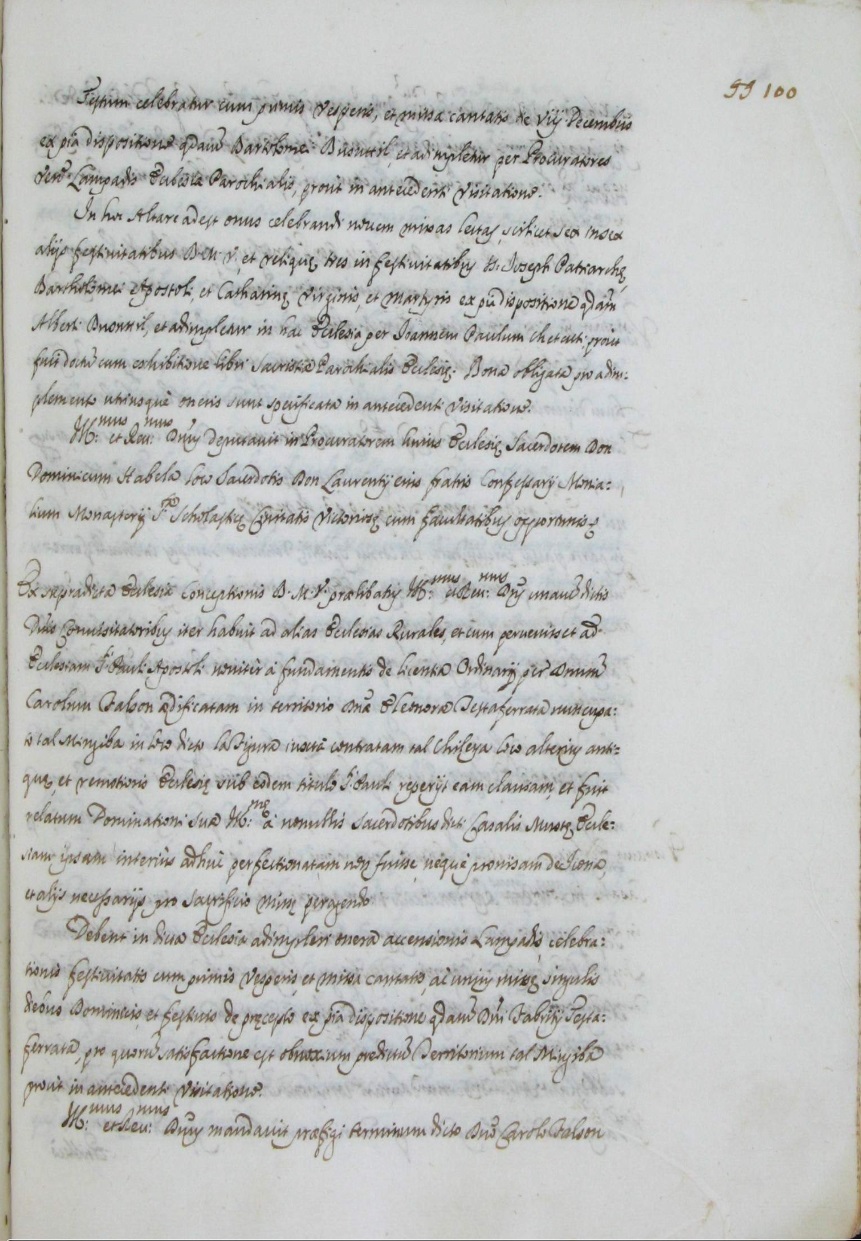 55 100
Festum celebratur cum primis Vesperis, et missa cantata de viij Decembris
ex pia dispositione qdam Bartholomei Buonnil, et adimpletur per Procuratores
Vene Lampadis Ecclesiæ Parochialis, prout in antecedenti Visitatione.
In hoc Altare adest onus celebrandi novem missas lectas, scilicet sex in sex
alijs festivitatibus B.M.V. et reliquę tres in festivitatibus S. Joseph Patriarchę,
Bartholomei Apostoli, et Catharinę Virginis, et Martyris ex pia dispositione qdam
Alberti Buonnil, et adimpletur in hac Ecclesia per Joannem Paulum chetcuti prout
fuit doctum cum exhibitione libri Sacristiæ Parochialis Ecclesię. Bona obligata pro adim:
plemento utriusque oneris sunt specificata in antecedenti Visitatione.
Ill:mus et Rev:mus Dnus Deputavit in Procuratorem huius Ecclesię Sacerdotem Don
Dominicum Habela loco Sacerdotis Don Laurentij eius fratris Confessarij Monia:
lium Monasterij Stæ Scholasticę Civitatis Victoriosę cum facultatibus opportunis
Ex supradicta Ecclesia Conceptionis B.M.V. prælibatus Ill:mus et Rev:mus Dnus unacum dictis
Dnis Convisitatoribus iter habuit ad alias Ecclesias Rurales, et cum pervenisset ad
Ecclesiam S. Pauli Apostoli noviter à fundamentis de licentia Ordinarij per Dnum
Carolum Falson ædificatam in territorio Dnæ Eleonoræ Testaferrata nuncupa:
to tal Mingiba in loco dicto la Figura iuxta contratam tal Chiseya loco alterius anti:
quę, et remotioris Ecclesię sub eodem titulo S. Pauli reperijt eam clausam, et fuit
relatum Dominationi Suæ Ill:mę à nonullis Sacerdotibus dicti Casalis Mustę Eccle:
siam ipsam interius adhuc perfectionatam non fuisse, neque provisam de Icona,
et alijs necessarijs pro Sacrificio missę peragendo
Debent in dicta Ecclesia adimpleri onera accensionis Lampadis, celebra:
tionis festivitatis cum primis Vesperis, et missa cantata, ac unius missę singulis
diebus Dominicis, et festivis de pręcepto ex pia dispositione qdam Dni Fabritij Testa:
ferrata, pro quorum satisfactione est obnoxium predictum Territorium tal Mingiba
prout in antecedenti Visitatione.
Ill:mus et Rev:mus Dnus mandavit præfigi terminum dicto Dno Carolo Falson